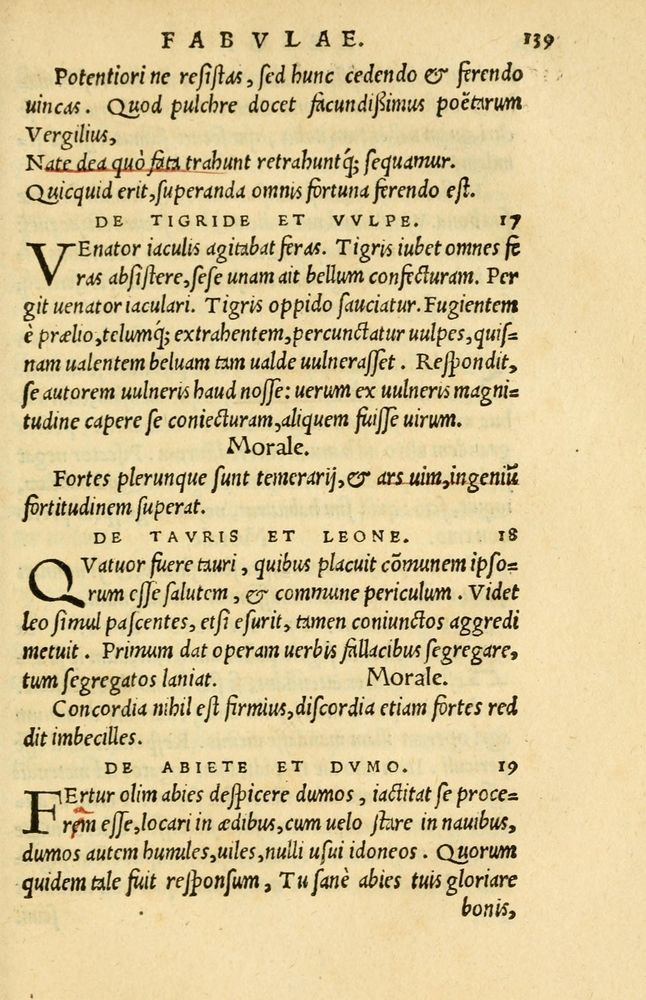 FABVLAE. 139
Potentiori ne resistas, sed hunc cedendo & ferendo
uincas. Quod pulchre docet facundißimus poëtarum
Vergilius,
Nate dea quò fata trahunt retrahuntq́; sequamur.
Quicquid erit, superanda omnis fortuna ferendo est.
DE TIGRIDE ET VVLPE. 17
VEnator iaculis agitabat feras. Tigris iubet omnes fe
ras absistere, sese unam ait bellum confecturam. Per
git uenator iaculari. Tigris oppido sauciatur. Fugientem
è prælio, telumq́; extrahentem, percunctatur uulpes, quis=
nam ualentem beluam tam ualde uulnerasset. Respondit,
se autorem uulneris haud nosse: uerum ex uulneris magni=
tudine capere se coniecturam, aliquem fuisse uirum.
Morale.
Fortes plerunque sunt temerarij, & ars uim, ingeniũ
fortitudinem superat.
DE TAVRIS ET LEONE. 18
QVatuor fuere tauri, quibus placuit cõmunem ipso=
rum esse salutem, & commune periculum. Videt
leo simul pascentes, etsi esurit, tamen coniunctos aggredi
metuit. Primum dat operam uerbis fallacibus segregare,
tum segregatos laniat. Morale.
Concordia nihil est firmius, discordia etiam fortes red
dit imbecilles.
DE ABIETE ET DVMO. 19
FErtur olim abies despicere dumos, iactitat se proce=
rem esse, locari in ædibus, cum uelo stare in nauibus,
dumos autem humiles, uiles, nulli usui idoneos. Quorum
quidem tale fuit responsum, Tu sanè abies tuis gloriare
bonis,